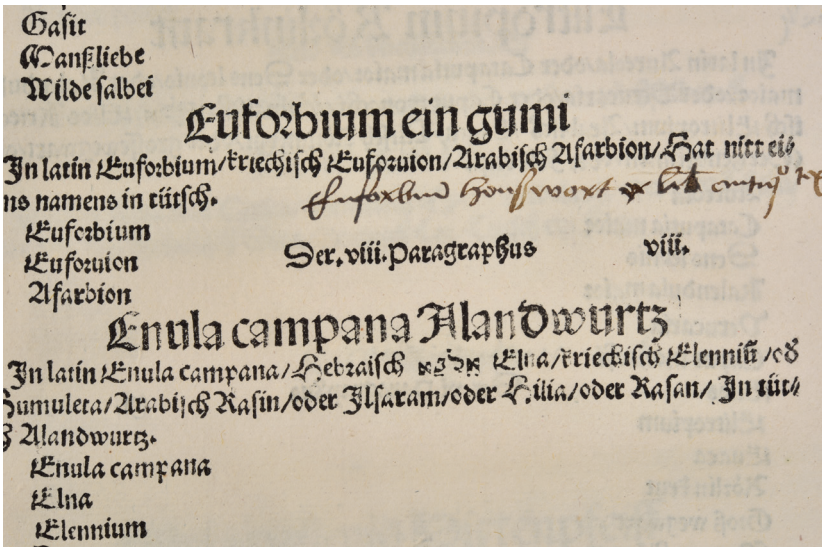 Gasit
Manßliebe
Wilde salbei
Euforbium ein gumi
In latin Euforbium/kriechisch Euforuion/Arabisch Afarbion/Hat nitt ei⸗
ns namens in tütsch.
Euforbium
Euforuion
Afarbion
Ser. viii. Paragraphus viii.
Enula campana Alandwurtz
In latin Enula campana/Hebraisch Elna/kriechisch Elenniū/od
Sumuleta/Arabisch Rasin/oder Ilsaram/oder Hilia/oder Rasan/In tüt⸗
Alandwurtz.
Enula campana
Elna
Elennium